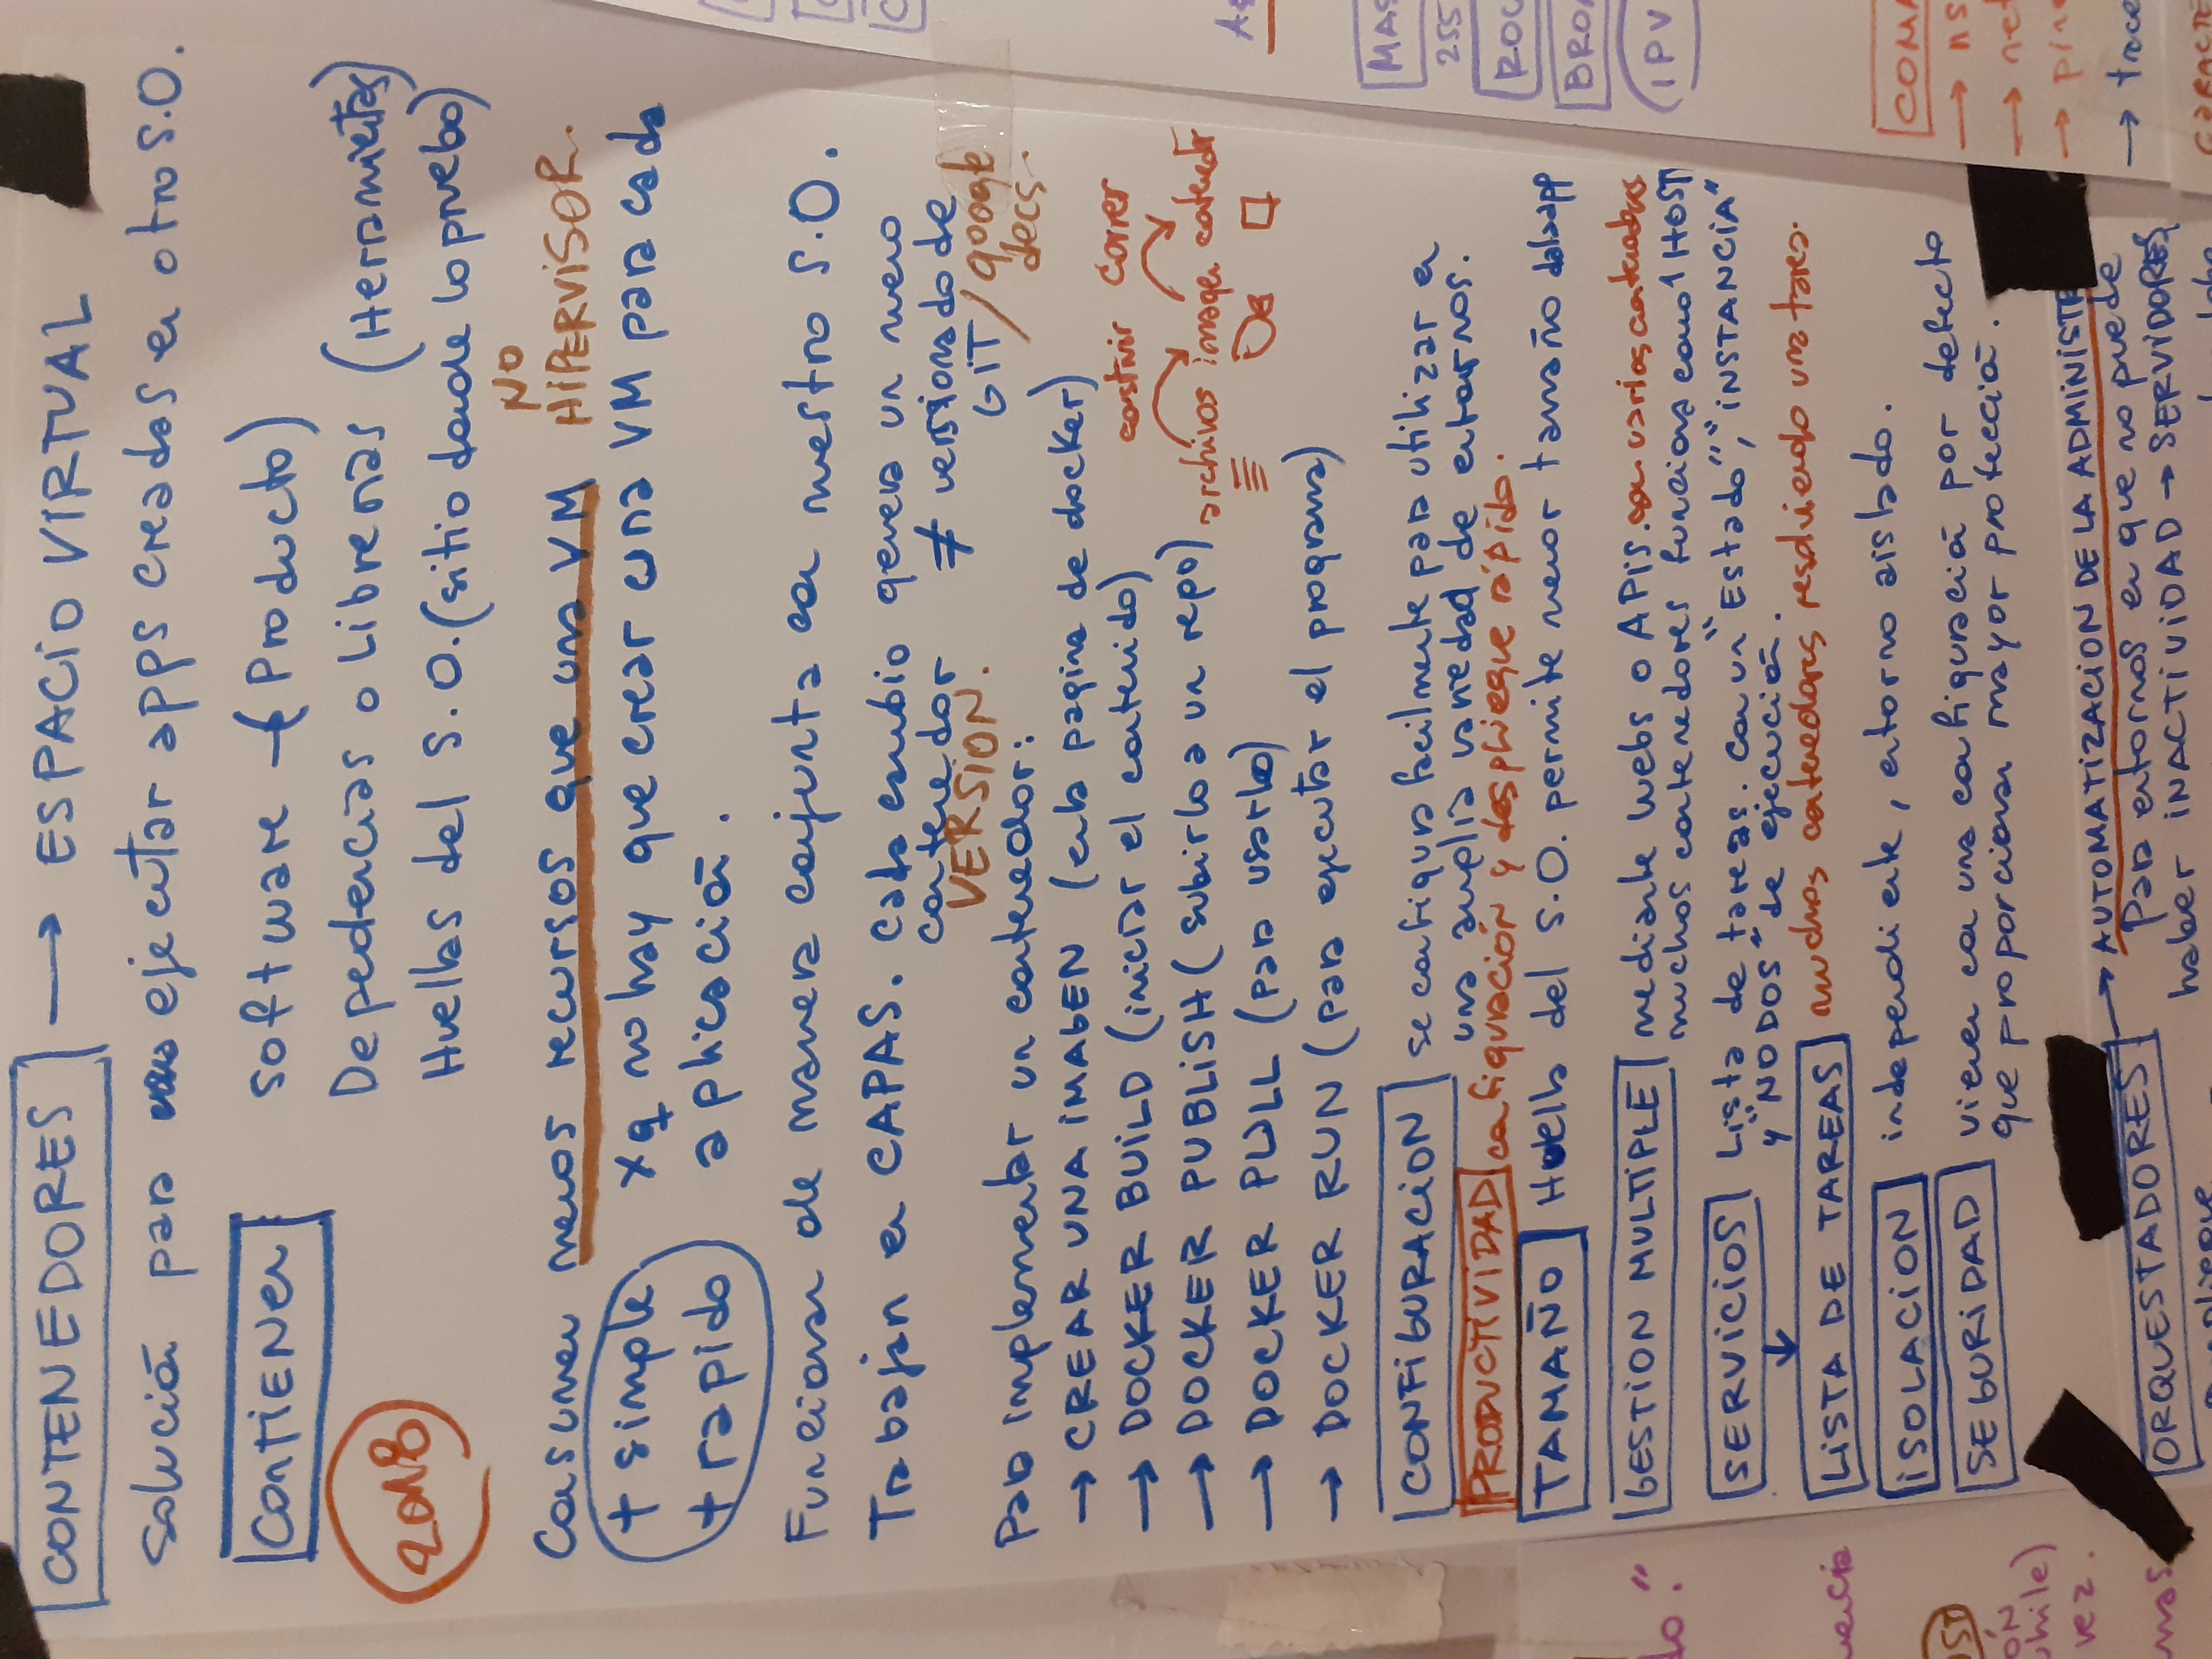 CONTENEDORES → ESPACIO VIRTUAL
Solución para ejecutar apps creadas en otro S.O.
CONTIENEN
software → (Producto)
Dependencias o Librerias (Herramientas)
Huellas del S.O. (sitio donde lo pruebo)
2018
Consumen menos recursos que una VM
NO
HIPERVISOR.
+ simple
+ rapido
xq no hay que crear una VM para cada
aplicación.
Funcionan de manera conjunta con nuestro S.O.
Trabajan en CAPAS. Cada cambio genera un nuevo
contenedor ≠ versionado de
VERSION.
GIT / google
docs.
Para implementar un contenedor:
→ CREAR UNA IMAGEN (en la pagina de docker)
→ DOCKER BUILD (iniciar el contenido)
→ DOCKER PUBLISH (subirlo a un repo)
→ DOCKER PULL (para usarlo)
→ DOCKER RUN (para ejecutar el programa)
construir correr
archivos imagen contenedor
CONFIGURACION se configura facilmente para utilizar en
una amplia variedad de entornos.
PRODUCTIVIDAD configuración y despliegue rápido.
TAMAÑO Huella del S.O. permite menor tamaño de la app
GESTION MULTIPLE mediante webs o APIs. con varios contenedores
muchos contenedores funciona como 1 HOST
SERVICIOS Lista de tareas. Con un "Estado", "INSTANCIA"
y "NODOS" de ejecución.
LISTA DE TAREAS muchos contenedores resolviendo una tarea.
ISOLACION independiente, entorno aislado.
SEGURIDAD vienen con una configuración por defecto
que proporcionan mayor protección.
ORQUESTADORES → AUTOMATIZACION DE LA ADMINISTR
Para entornos en que no puede
haber INACTIVIDAD → SERVIDORES
MAS
255
ROU
BROA
IPV
COMA
→ ns
→ net
→ pin
→ trace
CARACTE
do."
uencia
OST
ÓN
while)
vez.
mas